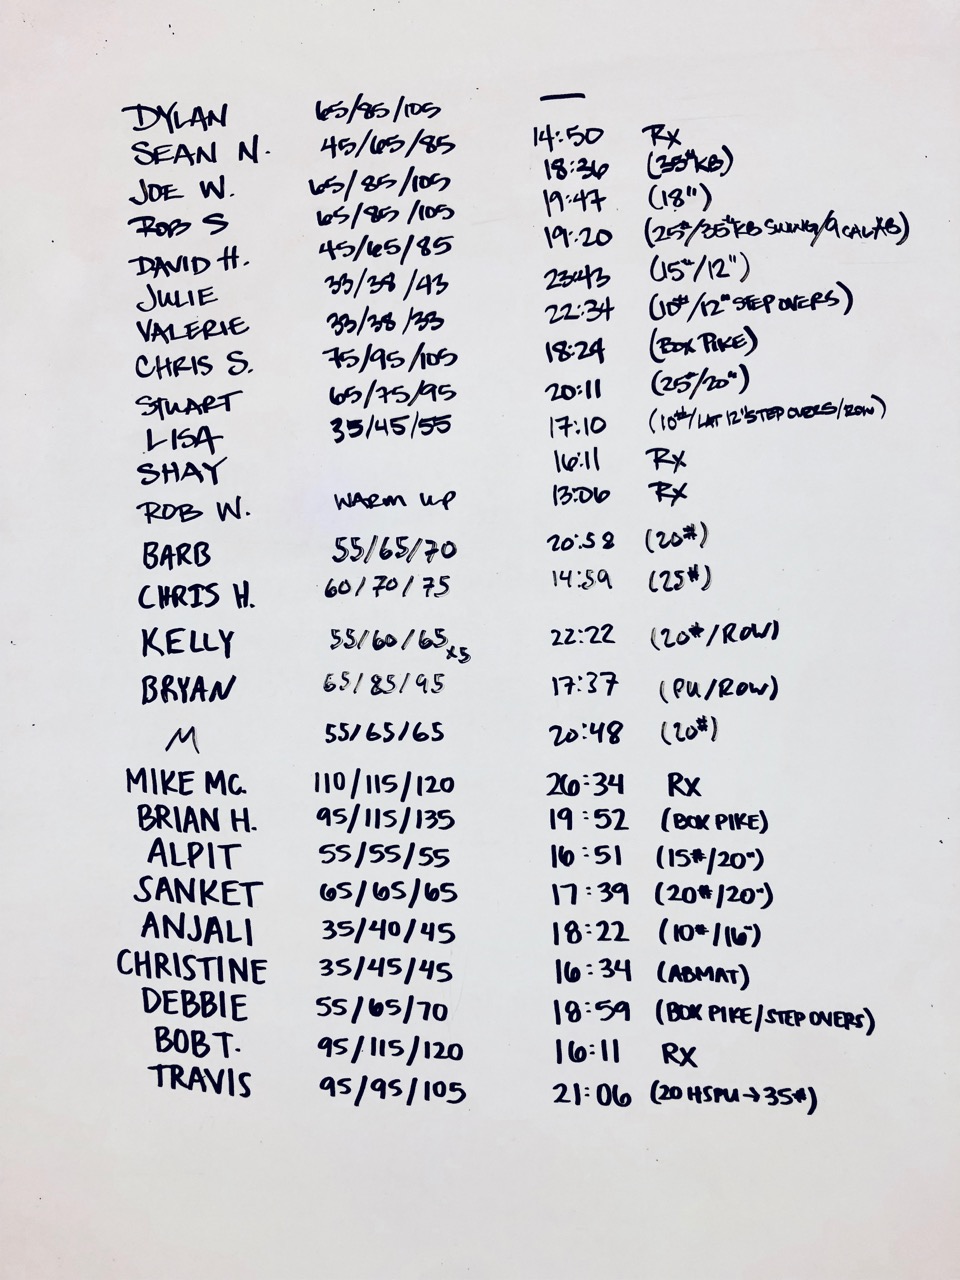 DYLAN 65/85/105 —
SEAN N. 45/65/85 14:50 Rx
JOE W. 65/85/105 18:36 (35#KB)
ROB S 65/85/105 19:47 (18")
DAVID H. 45/65/85 19:20 (25#/35#KB SWING/9 CAL AB)
JULIE 33/38/43 23:43 (15#/12")
VALERIE 33/38/33 22:34 (10#/12" STEP OVERS)
CHRIS S. 75/95/105 18:24 (BOX PIKE)
STUART 65/75/95 20:11 (25#/20")
LISA 35/45/55 17:10 (10#/LAT 12" STEP OVERS/ROW)
SHAY 16:11 Rx
ROB W. WARM UP 13:06 Rx
BARB 55/65/70 20:58 (20#)
CHRIS H. 60/70/75 14:59 (25#)
KELLY 55/60/65 x5 22:22 (20#/ROW)
BRYAN 65/85/95 17:37 (PU/ROW)
M 55/65/65 20:48 (20#)
MIKE MC. 110/115/120 26:34 Rx
BRIAN H. 95/115/135 19:52 (BOX PIKE)
ALPIT 55/55/55 16:51 (15#/20")
SANKET 65/65/65 17:39 (20#/20")
ANJALI 35/40/45 18:22 (10#/16")
CHRISTINE 35/45/45 16:34 (ABMAT)
DEBBIE 55/65/70 18:59 (BOX PIKE/STEP OVERS)
BOB T. 95/115/120 16:11 Rx
TRAVIS 95/95/105 21:06 (20 HSPU→35#)